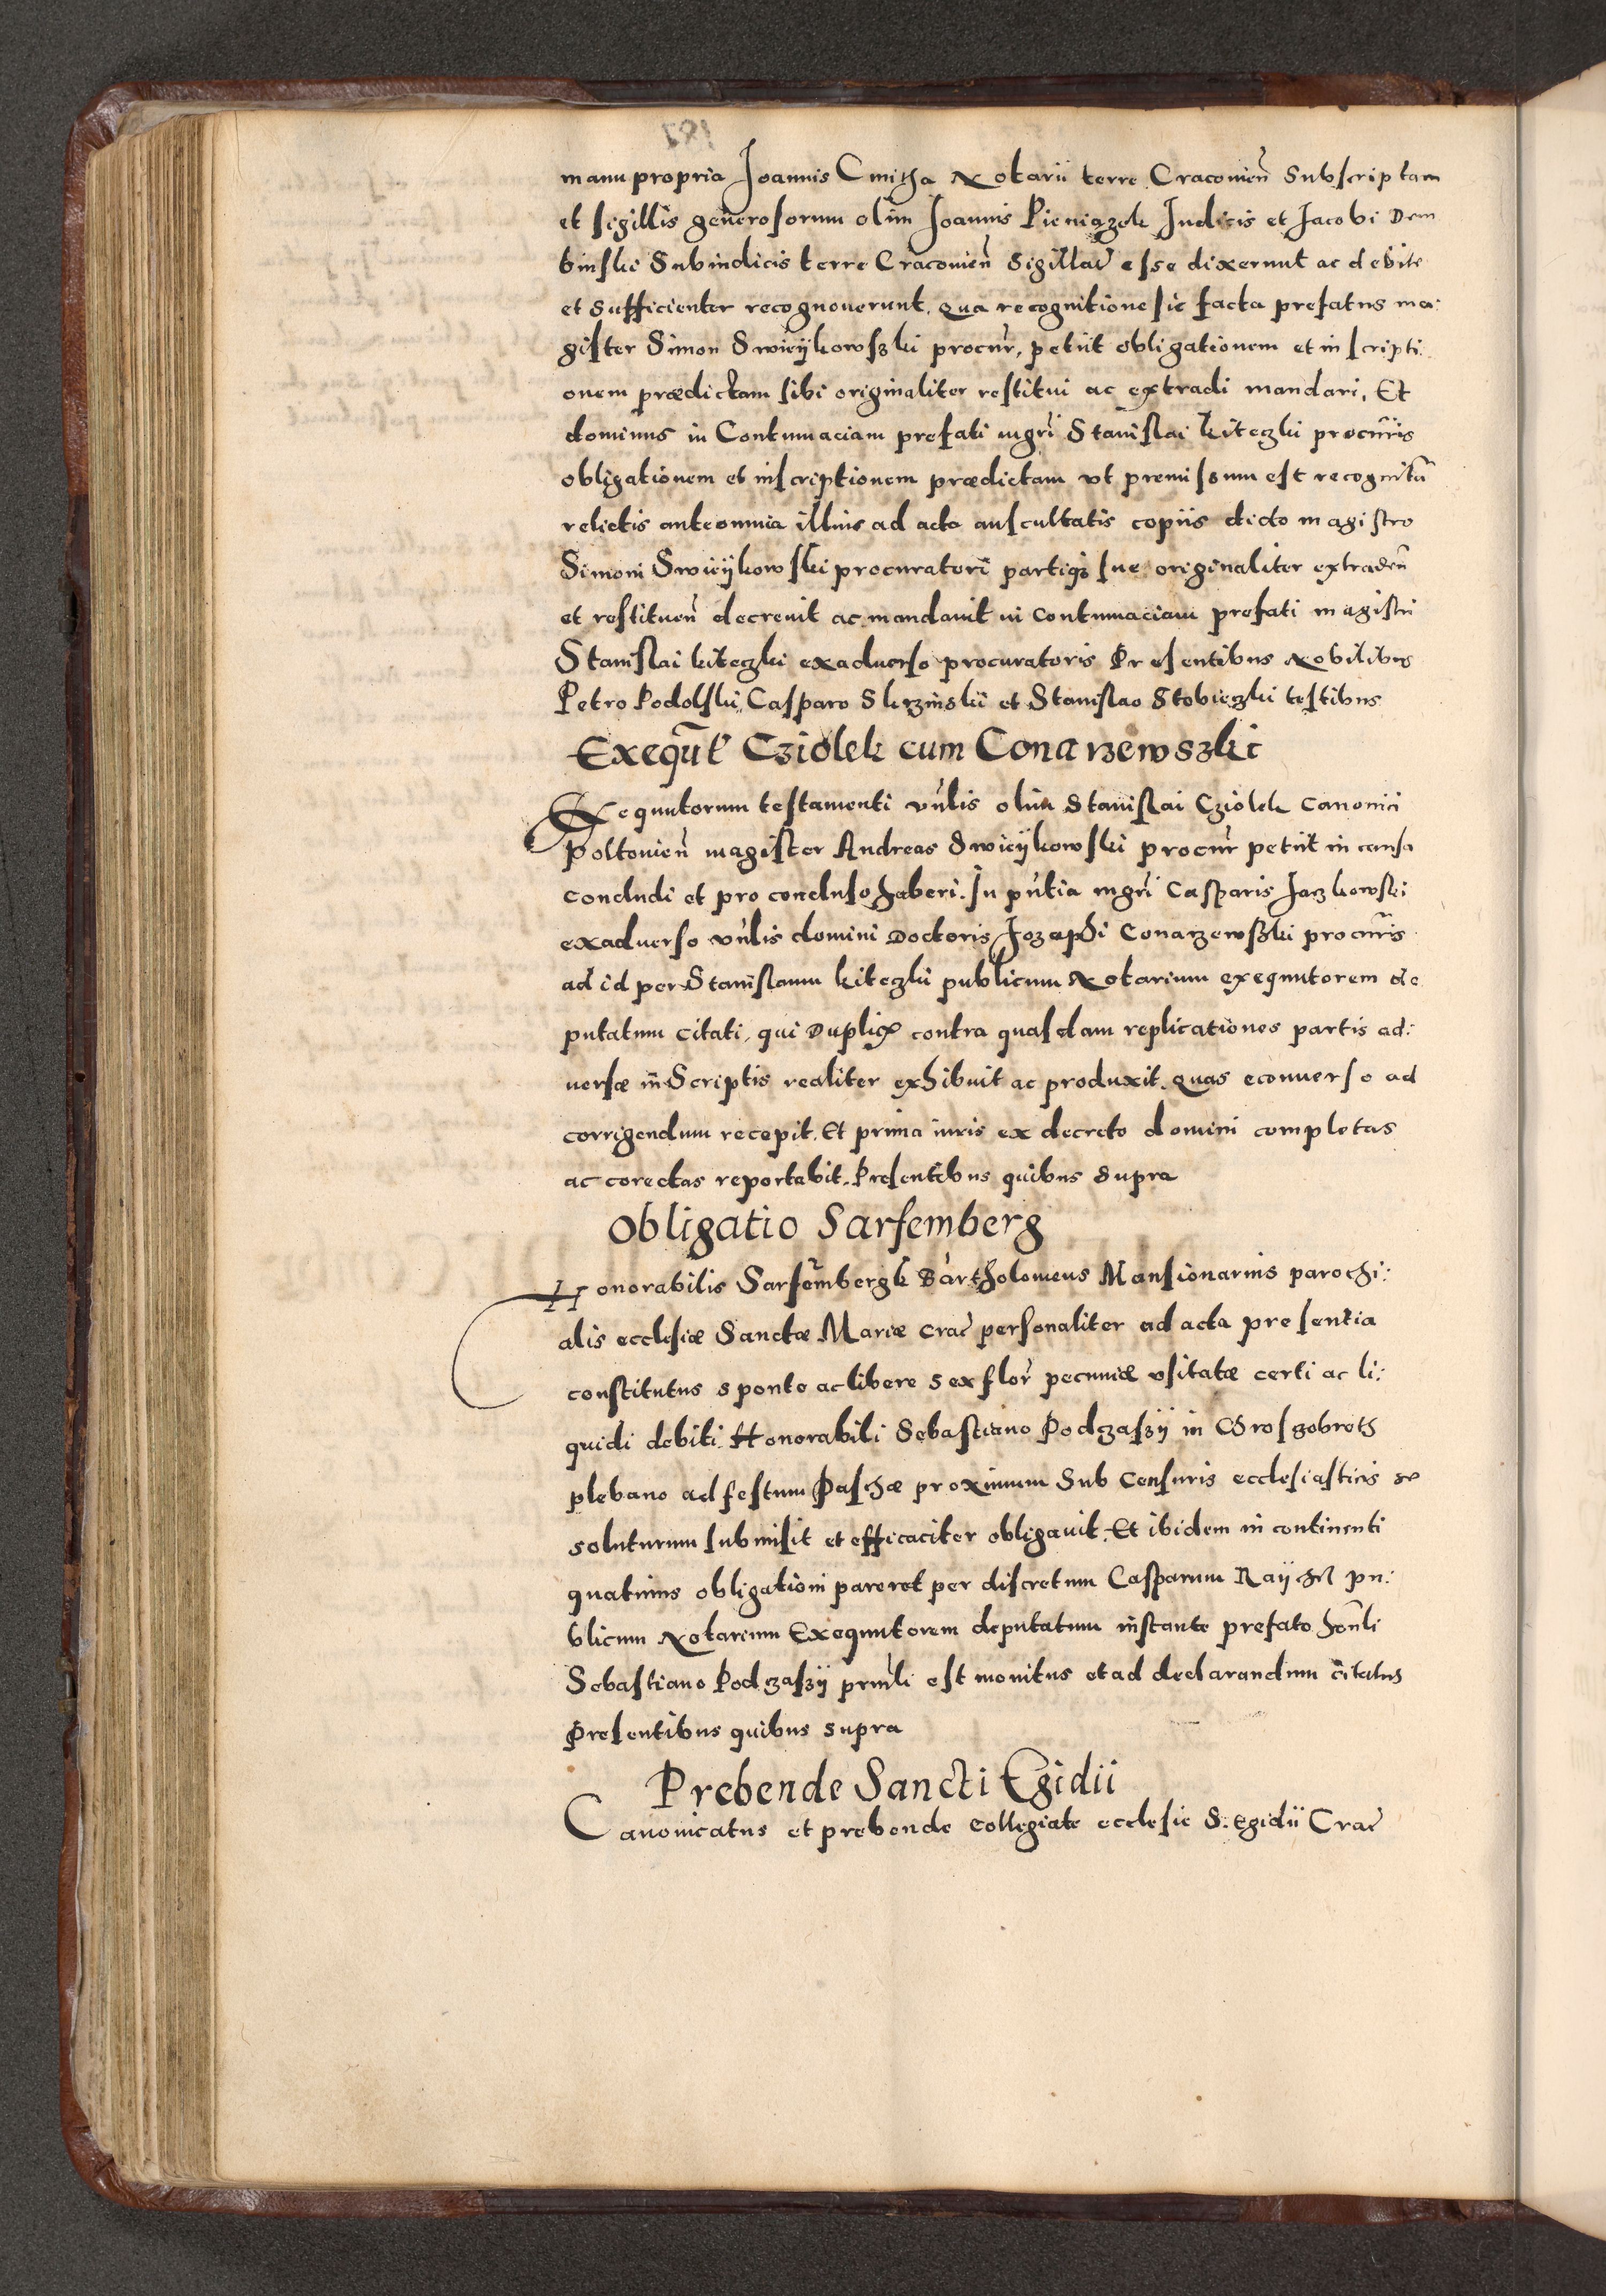 manu propria Joannis Cmitha Notarii terre Cracovien̄ Subscriptam
et sigillis generosorum olim Joannis Pieniązek Judicis et Jacobi Dem
binski Subiudicis terre Cracovien̄ Sigillat̄ esse dixerunt ac debite
et Sufficienter recognoverunt. Qua recognitione sic facta prefatus ma:
gister Simon Swieÿkowszki procur̄, petiit obligationem et inscripti:
onem prædictam sibi originaliter restitui ac extradi mandari. Et
dominus in Contumaciam prefati mgrī Stanislai Kiteczki procur̄is
obligationem et inscriptionem prædictam vt premissum est recognitā
relictis ante omnia illius ad acta auscultatis copiis dicto magistro
Simoni Swieÿkowski procuratori partiqȝ sue originaliter extraden̄
et restituen̄ decrevit ac mandavit in contumaciam prefati magistri
Stanislai Kiteczki exadverso procuratoris Presentibus Nobilibus
Petro Podolski, Casparo Skrzinskii et Stanislao Stobieczki testibus
Exequūt Cziolek cum Conarzewszki
Exequutorum testamenti vn̄lis olim Stanislai Cziolek Canonici
Poltovien̄ magister Andreas Swieÿkowski procur̄ petiit in causa
concludi et pro concluso haberi. In pn̄tia mgrī Casparis Jaczkowski
exadverso vn̄lis domini Doctoris Jozaphi Conarzewszki procur̄is
ad id per Stanislaum Kiteczki publicum Notarium exequutorem de
putatum citati, qui Duplicꝫ contra quasdam replicationes partis ad:
versæ in Scriptis realiter exhibuit ac produxit. quas econverso ad
corrigendum recepit. Et prima iuris ex decreto domini completas
ac corectas reportabit. Presentibus quibus supra
Obligatio Sarfemberg
Honorabilis Sarfembergk Bartholomeus Mansionarius parochi:
alis ecclesiæ Sanctæ Mariæ Crac̄ personaliter ad acta presentia
constitutus sponte ac libere sex flor̄ pecuniæ vsitatæ certi ac li:
quidi debiti Honorabili Sebastiano Podczaszÿ in Grosgobroth
plebano ad festum Paschæ proximum Sub Censuris ecclesiasticis se
soluturum submisit et efficaciter obligavit. Et ibidem in continenti
quatinus obligationi pareret per discretum Casparum pu:
blicum Notarium Exequutorem deputatum instante prefato hon̄li
Sebastiano Podczaszÿ prn̄li est monitus et ad declarandum citatus
Presentibus quibus supra
Prebende Sancti Egidii
Canonicatus et prebende collegiate ecclesie S: Egidii Crac̄